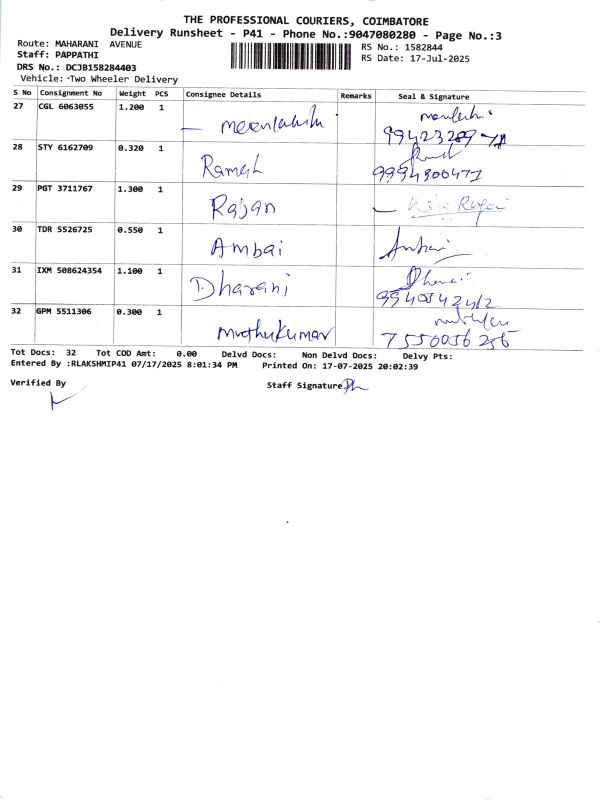 THE PROFESSIONAL COURIERS, COIMBATORE
Delivery Runsheet - P41 - Phone No.:9047080280 - Page No.:3
Route: MAHARANI AVENUE
RS No.: 1582844
Staff: PAPPATHI
RS Date: 17-Jul-2025
DRS No.: DCJB158284403
Vehicle: Two Wheeler Delivery
S No Consignment No Weight PCS Consignee Details Remarks Seal & Signature
27 CGL 6063055 1.200 1
28 STY 6162709 0.320 1 Ramesh
29 PGT 3711767 1.300 1 Rajan
30 TDR 5526725 0.550 1 Ambai
31 IXM 508624354 1.100 1 Dharani
9940542412
32 GPM 5511306 0.300 1 muthukumar
7550056256
Tot Docs: 32 Tot COD Amt: 0.00 Delvd Docs: Non Delvd Docs: Delvy Pts:
Entered By :RLAKSHMIP41 07/17/2025 8:01:34 PM Printed On: 17-07-2025 20:02:39
Verified By Staff Signature